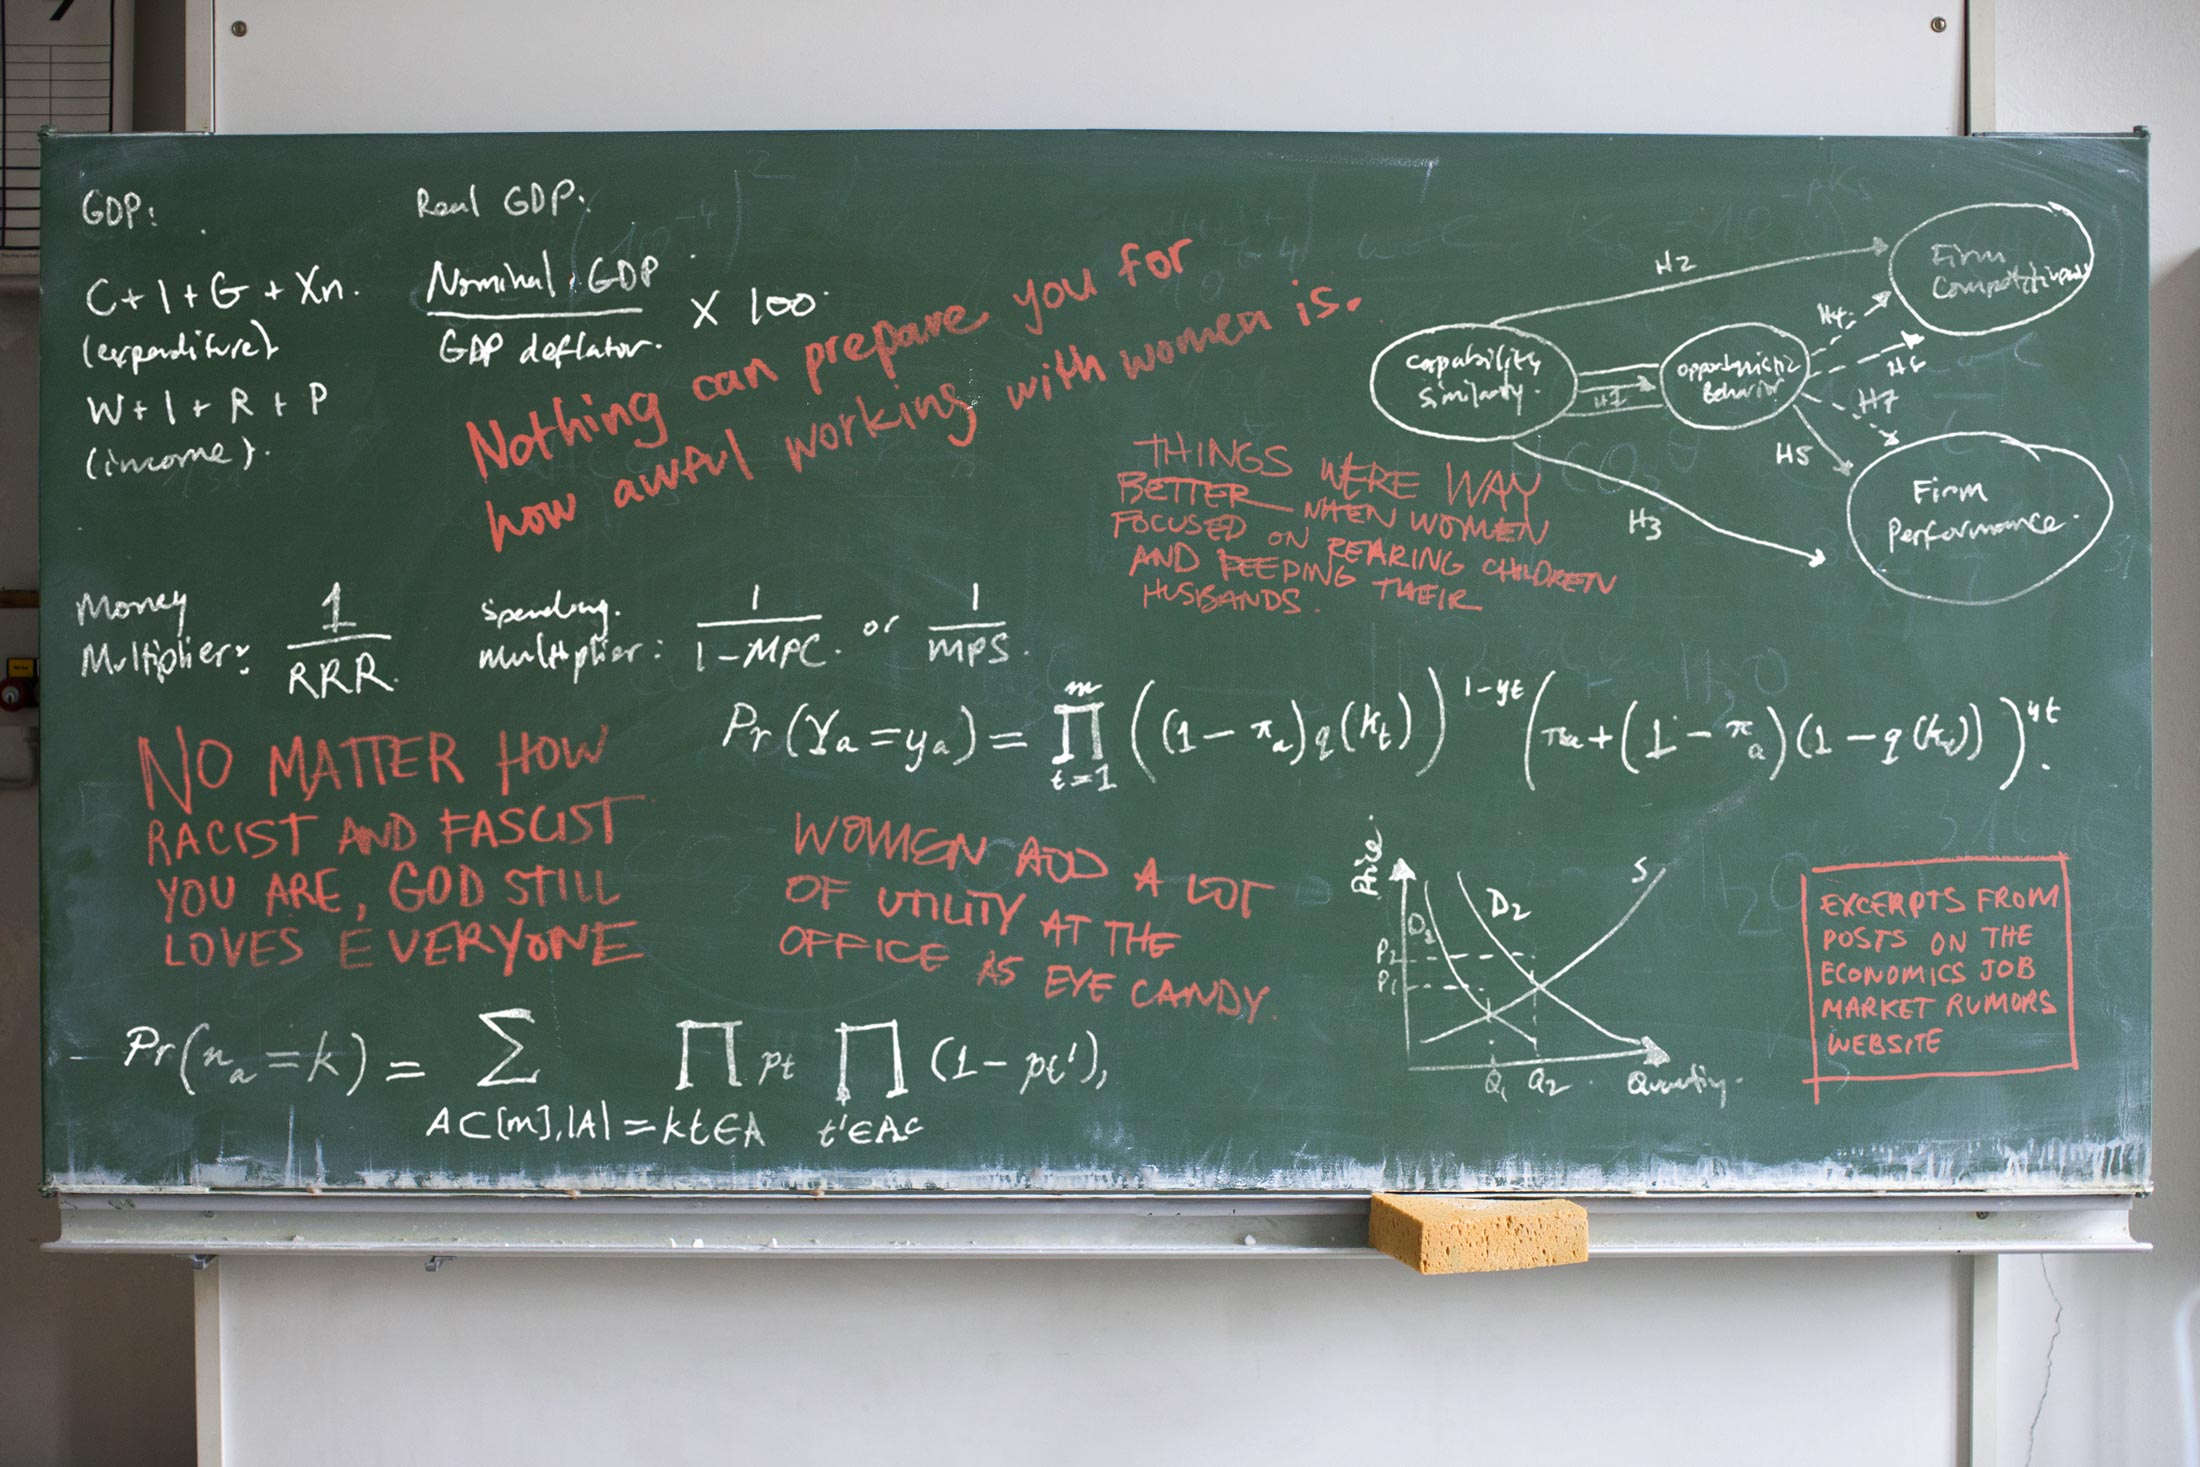 GDP:
C + I + G + Xn.
(expenditure)
W + I + R + P
(income).
Real GDP:
Nominal GDP
GDP deflator.
X 100
Nothing can prepare you for
how awful working with women is.
H2
H4
H6
H7
H1
H5
H3
Firm
capability
similarity.
opportunistic
Behavior
Firm
Performance.
THINGS WERE WAY
BETTER WHEN WOMEN
FOCUSED ON REARING CHILDREN
AND FEEDING THEIR
HUSBANDS.
Money
Multiplier:
1
RRR.
spending.
multiplier:
1
1-MPC.
or
1
MPS.
Pr(Ya=ya) = ∏ m t=1 ((1-πa)q(kt))^1-yt (πa+(1-πa)(1-q(kt)))^yt.
NO MATTER HOW
RACIST AND FASCIST
YOU ARE, GOD STILL
LOVES EVERYONE
WOMEN ADD A LOT
OF UTILITY AT THE
OFFICE AS EYE CANDY.
Price.
D1
D2
S
P2
P1
Q1
Q2
Quantity.
EXCERPTS FROM
POSTS ON THE
ECONOMICS JOB
MARKET RUMORS
WEBSITE
Pr(na=k) = ∑ ∏ pt ∏ (1-pt'),
A⊂[m],|A|=k t∈A t'∈Ac